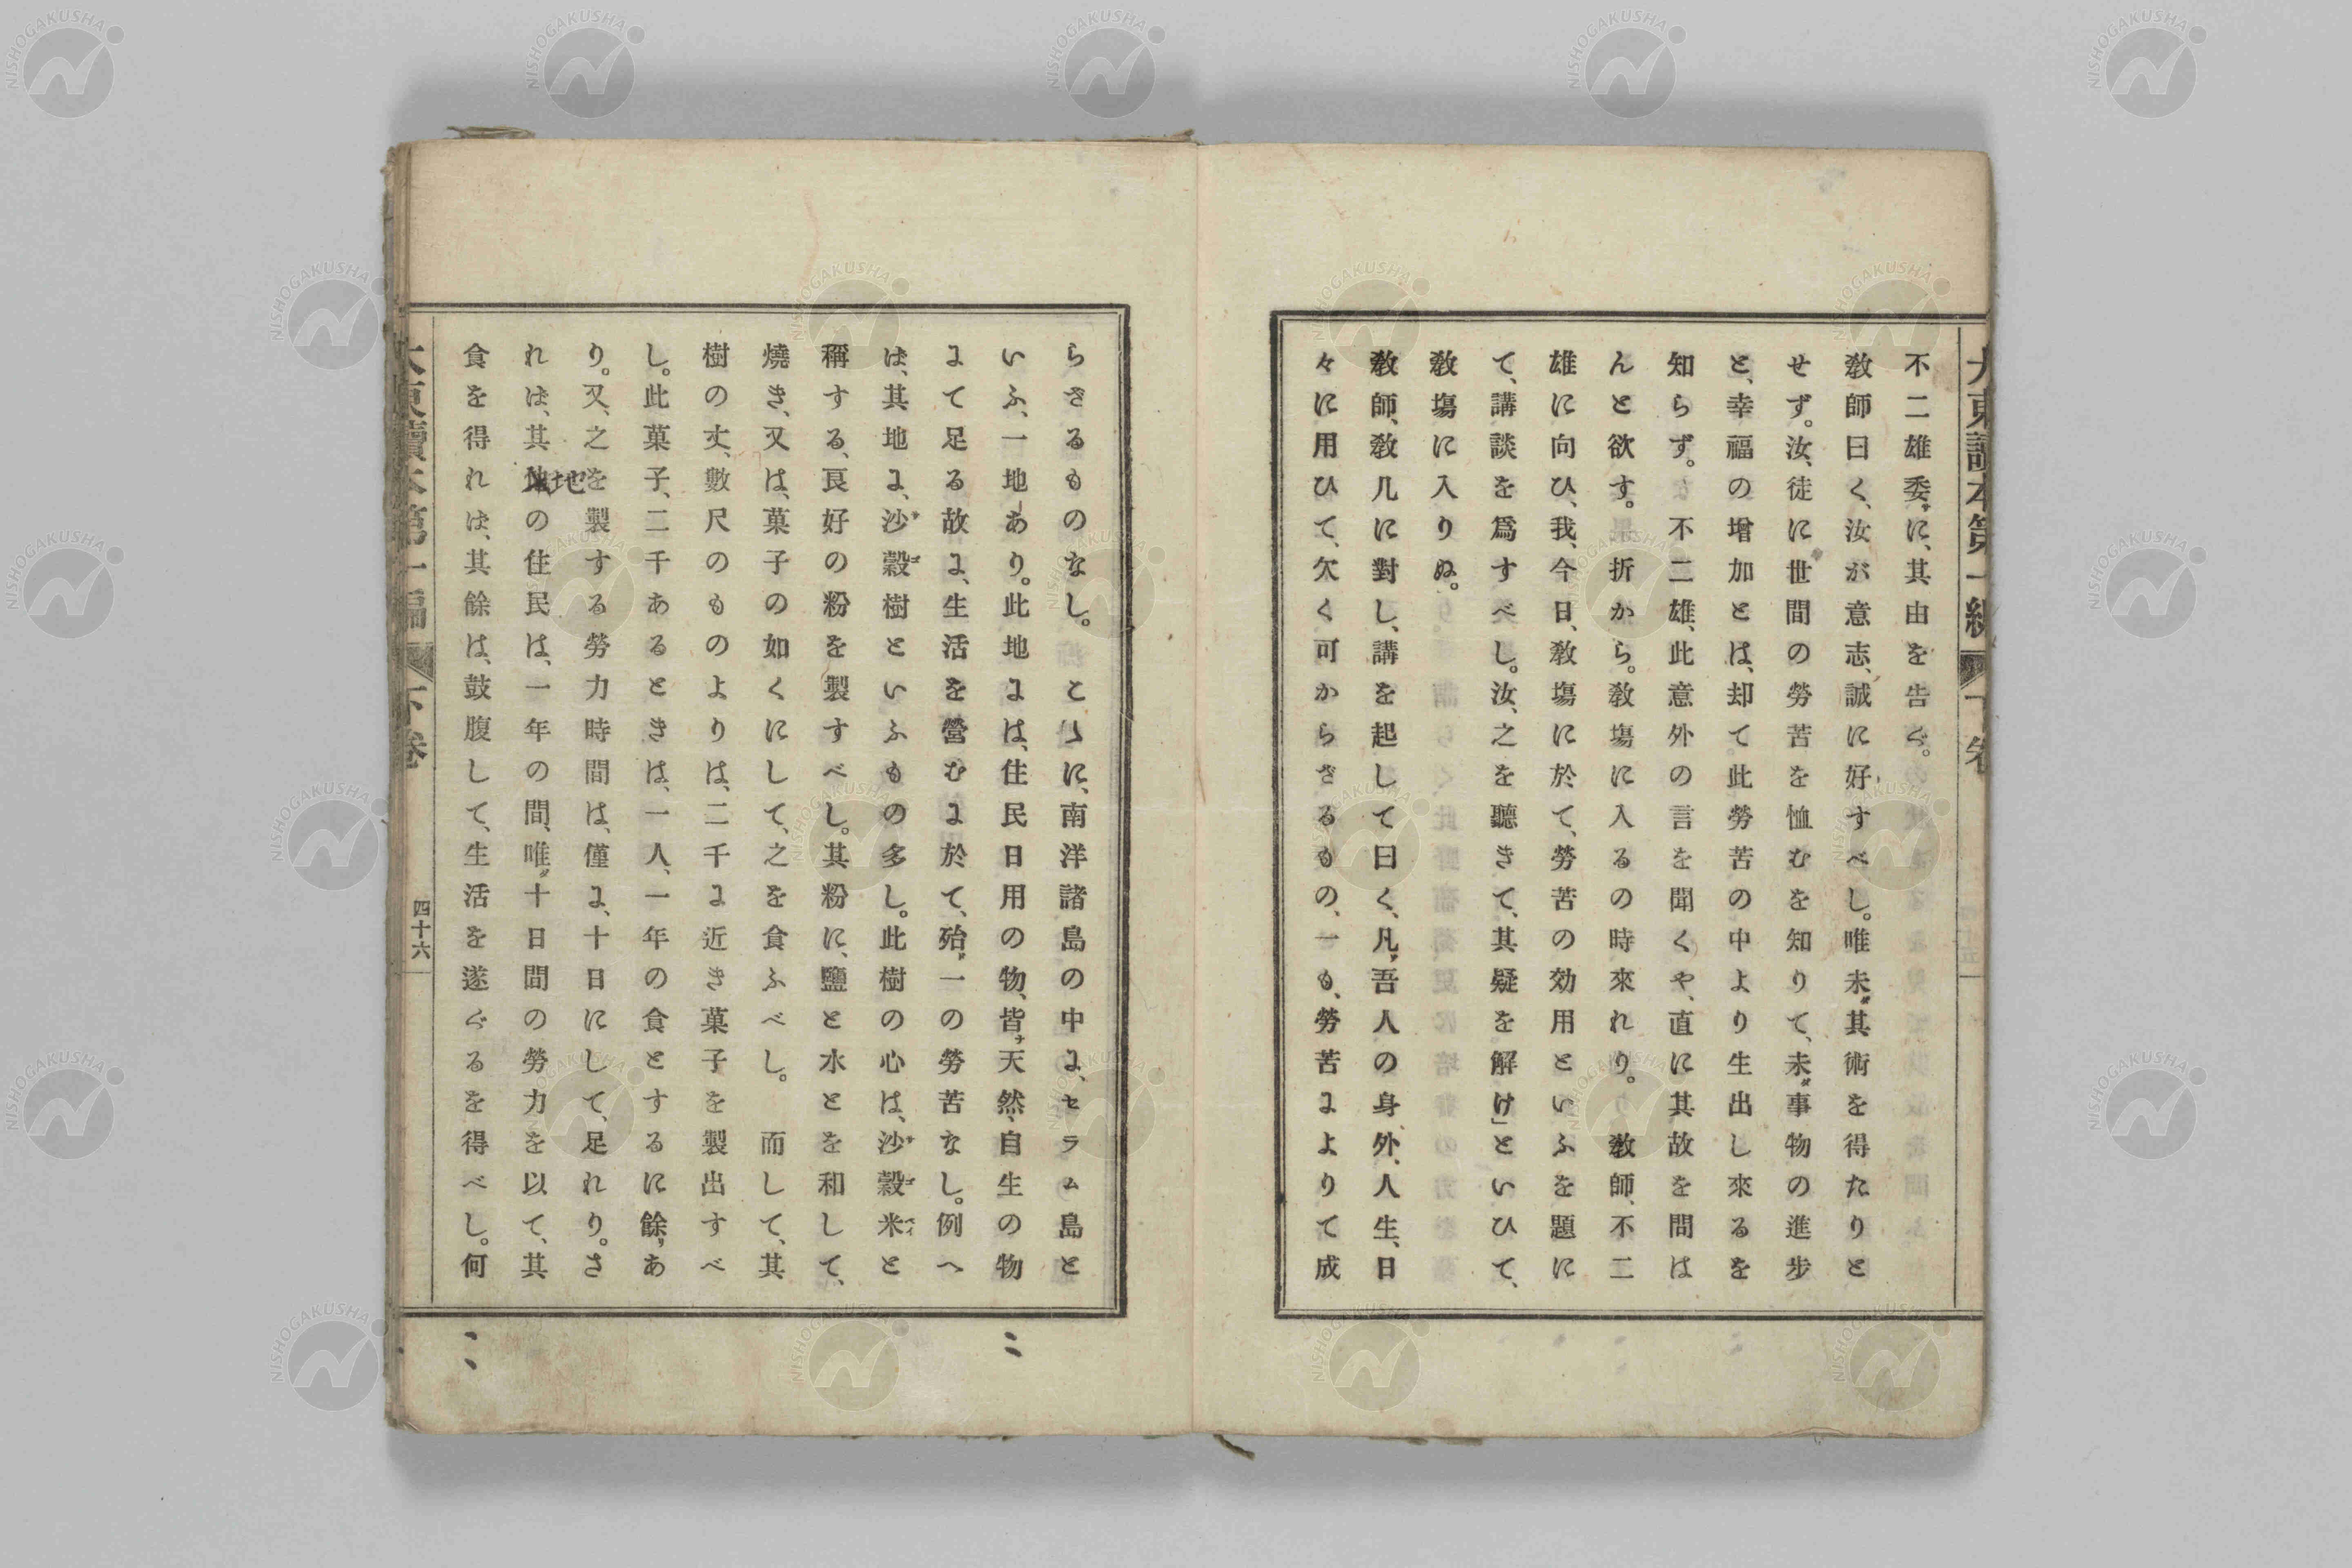 不二雄委に、其由を告ぐ。
教師曰く、汝が意志、誠に好すべし。唯未其術を得たりと
せず。汝、徒に世間の勞苦を恤むを知りて、未事物の進步
と、幸福の增加とは、却て此勞苦の中より生出し來るを
知らず。不二雄、此意外の言を聞くや、直に其故を問は
んと欲す。折から。教塲に入るの時來れり。教師、不二
雄に向ひ、我、今日、教塲に於て、勞苦の効用といふを題に
て、講談を爲すべし。汝、之を聽きて、其疑を解け」といひて、
教塲に入りぬ。
教師、教几に對し、講を起して曰く、凡吾人の身外、人生、日
々に用ひて、欠く可からざるもの、一も、勞苦によりて成
らざるものなし。こゝに、南洋諸島の中に、セラム島と
いふ、一地あり。此地には、住民日用の物、皆天然、自生の物
にて足る故に、生活を營むに於て、殆一の勞苦なし。例へ
は、其地に、沙穀樹といふもの多し。此樹の心は、沙穀米と
稱する、良好の粉を製すべし。其粉に、鹽と水とを和して、
燒き、又は、菓子の如くにして、之を食ふべし。而して、其
樹の丈、數尺のものよりは、二千に近き菓子を製出すべ
し。此菓子、二千あるときは、一人、一年の食とするに餘あ
り。又、之を製する勞力時間は、僅に、十日にして、足れり。さ
れは、其地の住民は、一年の間、唯十日間の勞力を以て、其
食を得れは、其餘は、鼓腹して、生活を遂ぐるを得べし。何
四十六
NISHOGAKUSHA